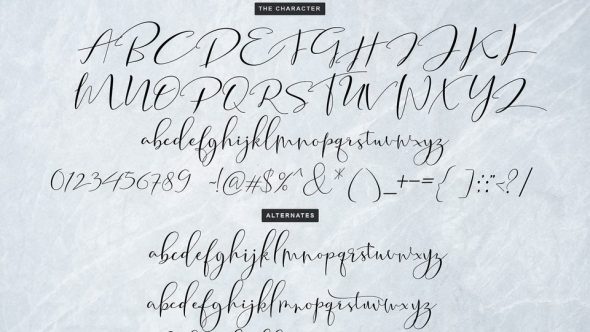 THE CHARACTER
ABCDEFGHIJKL
MNOPQRSTUVWXYZ
abcdefghijklmnopqrstuvwxyz
0123456789 -!@#$%^&*()_+-={ }::"<?/
ALTERNATES
abcdefghijklmnopqrstuvwxyz
abcdefghijklmnopqrstuvwxyz